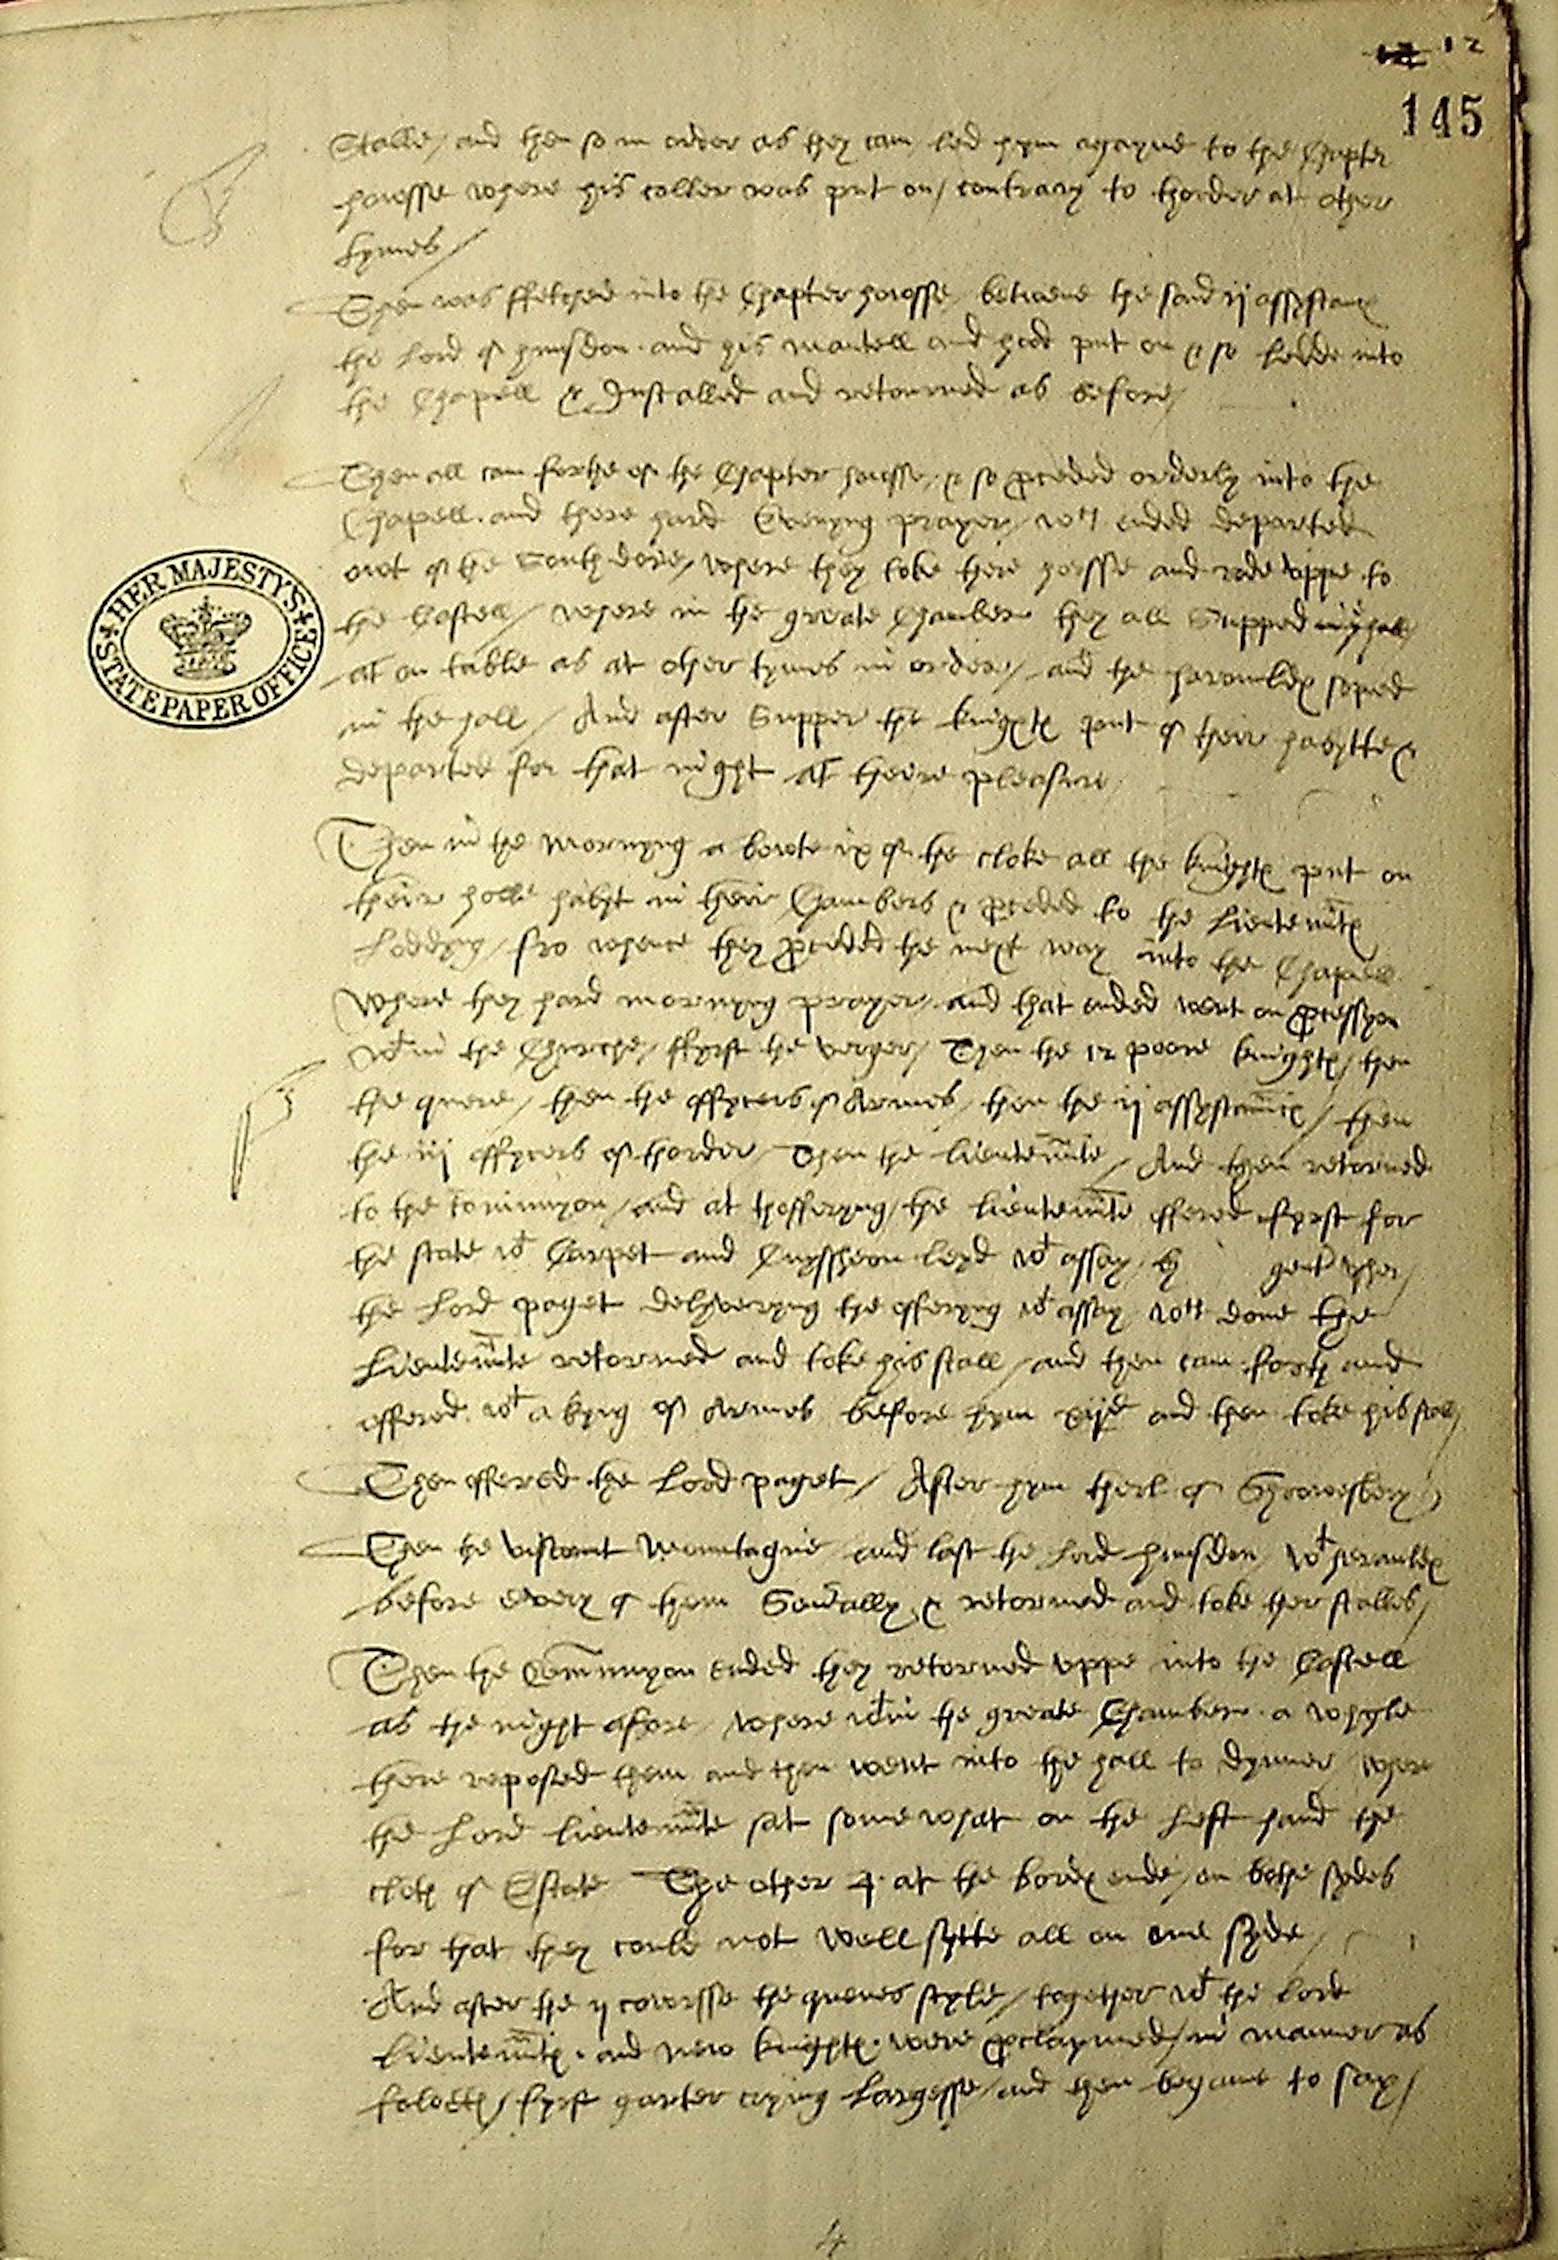 12 12
145
Stalle / and then so in order as they cam led hym agayne to the Chapter
howsse where his coller was put on / contrary to thorder at other
tymes /
Then was ffetched into the Chapter howsse / betwene the said ij assystantꝭ
the Lord of hunsdon and his mantell and hood put on & so ledde into
the Chapell & Installed and retourned as before /
Then all cam forthe of the Chapter howsse / & so ꝓceded orderly into the
Chapell and there hard Evenyng prayer / wch ended departed
owt of the South dore / where they toke there horsse and rode uppe to
the Castell / where in the greate Chamber they all Supped
at on table as at other tymes in order / and the herauldꝭ soped
in the hall / And after Supper the knightꝭ put of their habytte &
departed for that night at theire pleasure /
Then in the mornyng a bowte ix of the cloke all the knightꝭ put on
their holle habyt in their Chambers & ꝓceded to the Lieutenñtꝭ
Lodgyng / fro whence they ꝓceded the next way into the Chapell
where they hard mornyng prayer / and that ended went on ꝓcessyon
wt in the Churche / ffyrst the verger / Then the 12 poore knightꝭ / then
the quere / then the offycers of Armes / then the ij assystañtꝭ / then
the iij offycers of thorder / Then the lieutenñte / And then retorned
to the communyon / and at thofferyng / the lieutenñte offered fyrst for
the state wt Carpet and Cuyssheon leyd wt assay / by gent vsher /
the Lord paget delyveryng the offeryng wt assay wch done the
Lieutenñte retorned and toke his stall / and then cam forth and
offered wt a kyng of Armes before hym xijd and then toke his stall /
Then offered the Lord paget / After hym therl of Shrowesbery /
Then the viscount Mountague / and last the Lord hunsdon / wt herauldꝭ
before every of them Seuerally & retorned and toke ther stalles /
Then the Com̃unyon ended they retorned uppe into the Castell
as the night afore / where wtin the greate Chamber a whyle
there reposed them and then went into the hall to dynner / where
the Lord lieutenñte sat somewhat on the left hand the
cloth of Estate The other 4 at the bordꝭ ende / on bothe sydes
for that they coulde not well sytte all on one syde /
And after the ij cowrsse the quenes style / together wt the Lord
Lieutenñtꝭ and new knightꝭ were ꝓclaymed / in manner as
foloeth / fyrst garter crying Largesse / and then begane to say /
4
HER MAJESTY'S STATE PAPER OFFICE